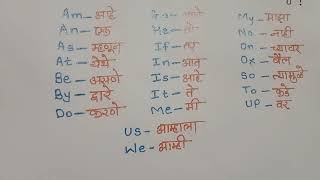 Am - आहे
An - एक
As - म्हणून
At - येथे
Be - असणे
By - द्वारे
Do - करणे
Go - जाणे
He - तो
If - तर
In - आत
Is - आहे
It - ते
Me - मी
My - माझा
No - नाही
On - च्यावर
Ox - बैल
So - त्यामुळे
To - कडे
UP - वर
US - आम्हाला
We - आम्ही